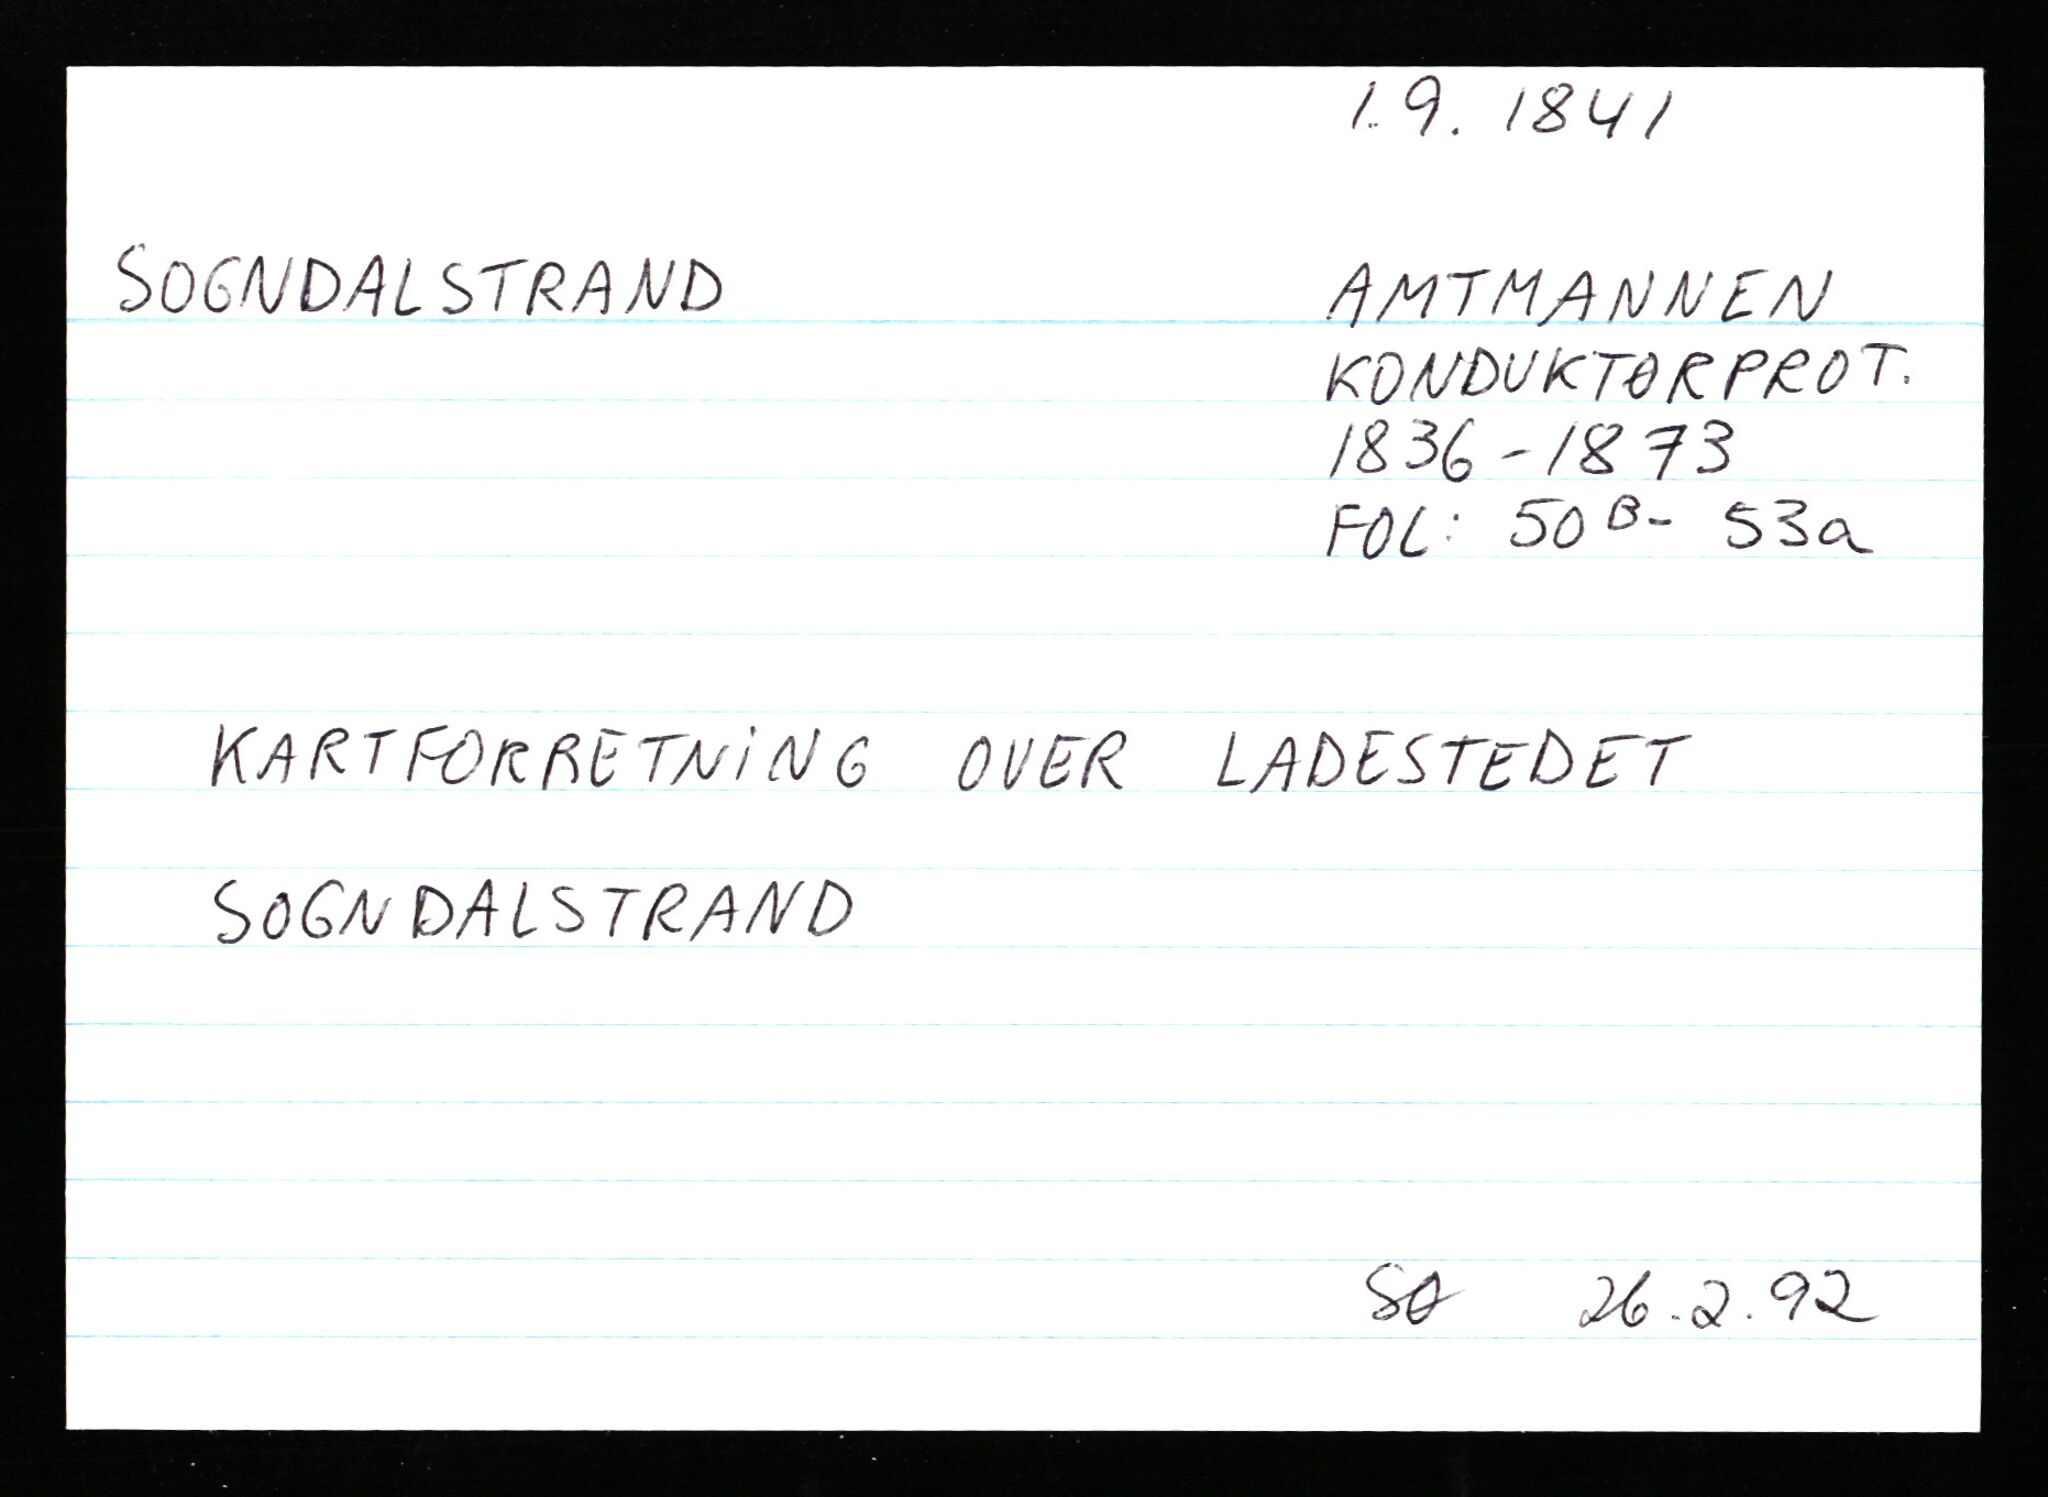 1.9. 1841
SOGNDALSTRAND
AMTMANNEN
KONDUKTØRPROT.
1836-1873
FOL: 50B- 53a
KARTFORRETNING OVER LADESTEDET
SOGNDALSTRAND
SØ 26.2.92